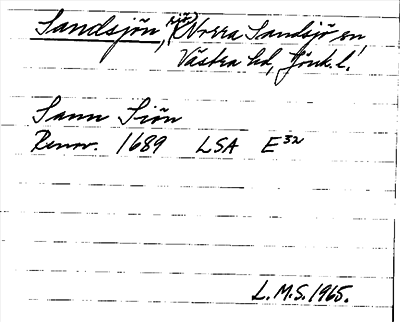 Sandsjön, sjö (Norra Sandsjö sn
Västra hd, Jönk. l.
Sann Siön
Renov. 1689 LSA E³²
L.M.S. 1965.